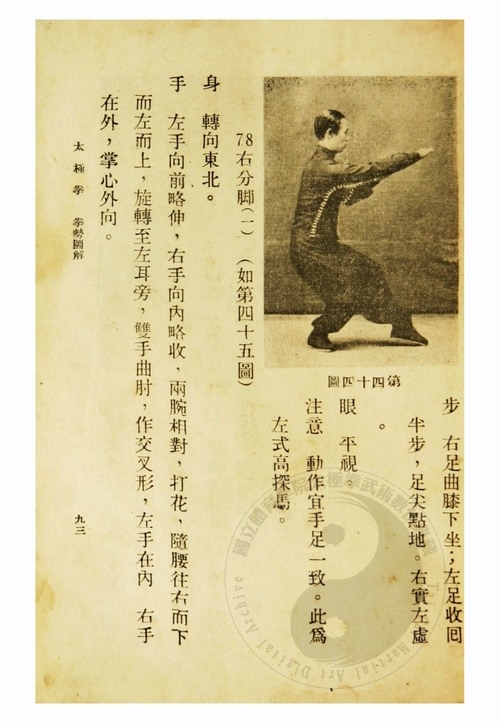 步　右足曲膝下坐；左足收囘
半步，足尖點地。右實左虛
。
眼　平視。
注意　動作宜手足一致。此爲
左式高探馬。
第四十四圖
78右分脚(一)　(如第四十五圖)
身　轉向東北。
手　左手向前略伸，右手向內略收，兩腕相對，打花，隨腰往右而下
而左而上，旋轉至左耳旁，雙手曲肘，作交叉形，左手在內　右手
在外，掌心外向。
太極拳　拳勢圖解
九三
國立體
院
極拳武術數
Martial Art Digital Archive